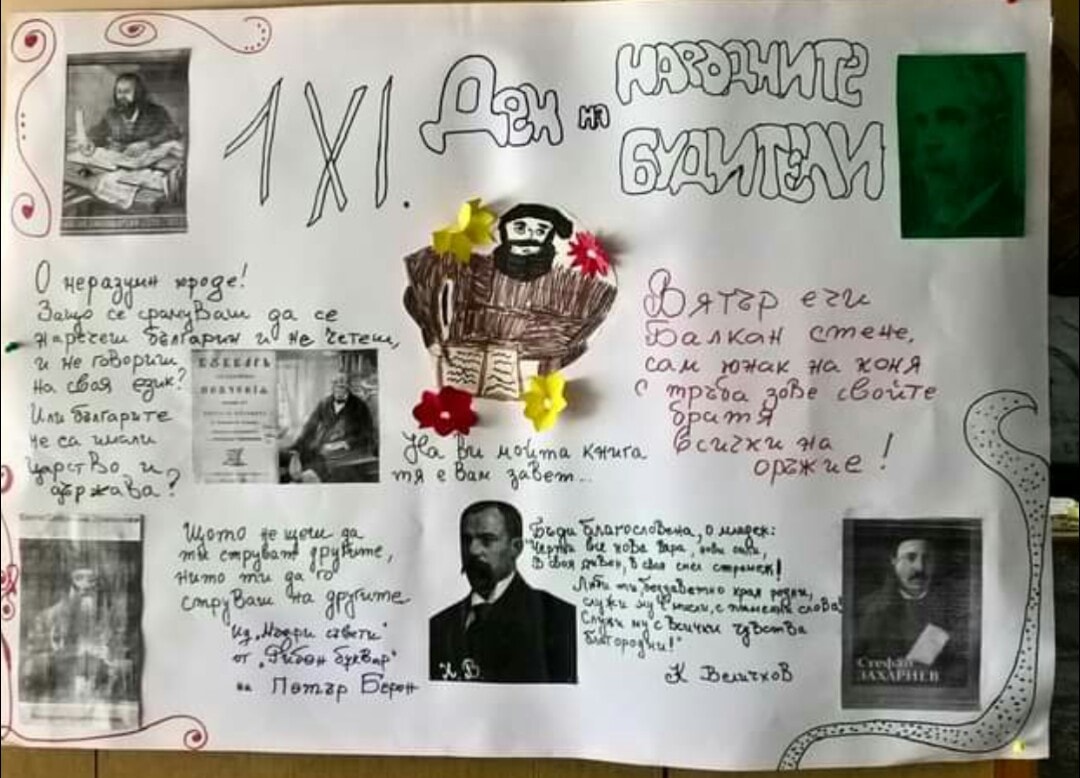 1 XI. Ден на
НАРОДНИТЕ
БУДИТЕЛИ
О неразумни юроде!
Защо се срамуваш да се
наречеш българин и не четеш,
и не говориш
на своя език?
Или българите
не са имали
царство и
държава?
БУКВАРЬ
На ви мойта книга
тя е вам завет...
Вятър ечи
Балкан стене,
сам юнак на коня
с тръба зове свойте
братя
всички на
оръжие!
Щото не щеш да
ти струват другите,
нито ти да го
струваш на другите
Из „Мъдри съвети"
от „Рибен буквар"
на Петър Берон
К. В.
Бъди благословена, о младеж:
"Черпи все нова вяра, нови сили,
Люби ти, беззаветно края родни,
служи му с мисли, с пламенни слова
Служи му с всички чувства
благородни!"
К Величков
Стефан
ЗАХАРИЕВ